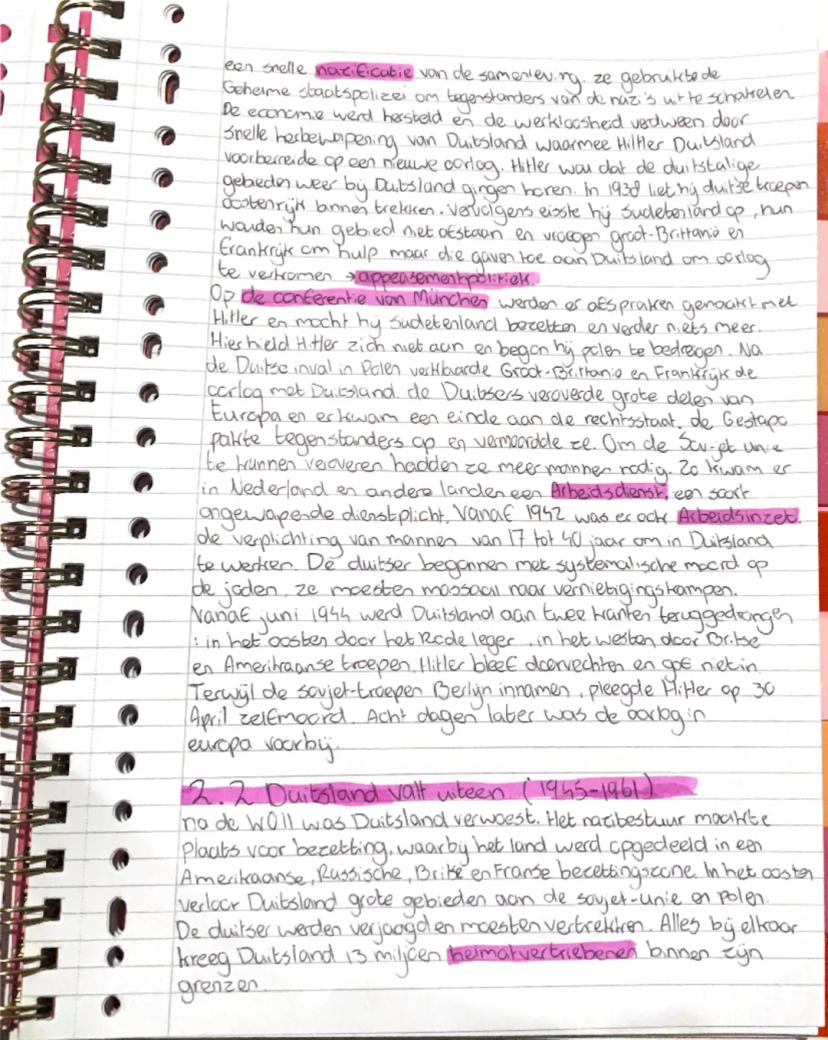 een snelle nazificatie van de samenleving. ze gebruikte de
Geheime staatspolizei om tegenstanders van de nazi's uit te schakelen
De economie werd hersteld en de werkloosheid verdween door
snelle herbewapening van Duitsland waarmee Hitler Duitsland
voorbereide op een nieuwe oorlog. Hitler wou dat de duitstalige
gebieden weer bij Duitsland gingen horen. In 1938 liet hij duitse troepen
oostenrijk binnen trekken. Vervolgens eiste hij Sudetenland op, hun
wouden hun gebied niet afstaan en vroegen groot-Brittanië en
Frankrijk om hulp maar die gaven toe aan Duitsland om oorlog
te verkomen → appeasementpolitiek.
Op de conferentie van München werden er afspraken gemaakt met
Hitler en mocht hij Sudetenland bezetten en verder niets meer.
Hier hield Hitler zich niet aan en begon hij polen te bedregen. Na
de Duitse inval in Polen verklaarde Groot-Brittanië en Frankrijk de
oorlog met Duitsland. de Duitsers veroverde grote delen van
Europa en er kwam een einde aan de rechtsstaat. de Gestapo
pakte tegenstanders op en vermoordde ze. Om de Sovjet unie
te kunnen veroveren hadden ze meer mannen nodig. Zo kwam er
in Nederland en andere landen een Arbeidsdienst, een soort
ongewapende dienstplicht. Vanaf 1942 was er ook Arbeidsinzet.
de verplichting van mannen van 17 tot 40 jaar om in Duitsland
te werken. De duitser begonnen met systematische moord op
de joden, ze moesten massaal naar vernietigingskampen.
Vanaf juni 1944 werd Duitsland aan twee kanten teruggedrongen
: in het oosten door het Rode leger, in het westen door Britse
en Amerikaanse troepen. Hitler bleef doorvechten en gaf niet in.
Terwijl de sovjet-troepen Berlijn innamen, pleegde Hitler op 30
April zelfmoord. Acht dagen later was de oorlog in
europa voorbij.
2.2 Duitsland valt uiteen (1945-1961)
na de WOII was Duitsland verwoest. Het nazibestuur maakte
plaats voor bezetting, waarbij het land werd opgedeeld in een
Amerikaanse, Russische, Britse en Franse bezettingszone. In het oosten
verloor Duitsland grote gebieden aan de sovjet-unie en polen.
De duitser werden verjaagd en moesten vertrekken. Alles bij elkaar
kreeg Duitsland 13 miljoen heimatvertriebenen binnen zijn
grenzen